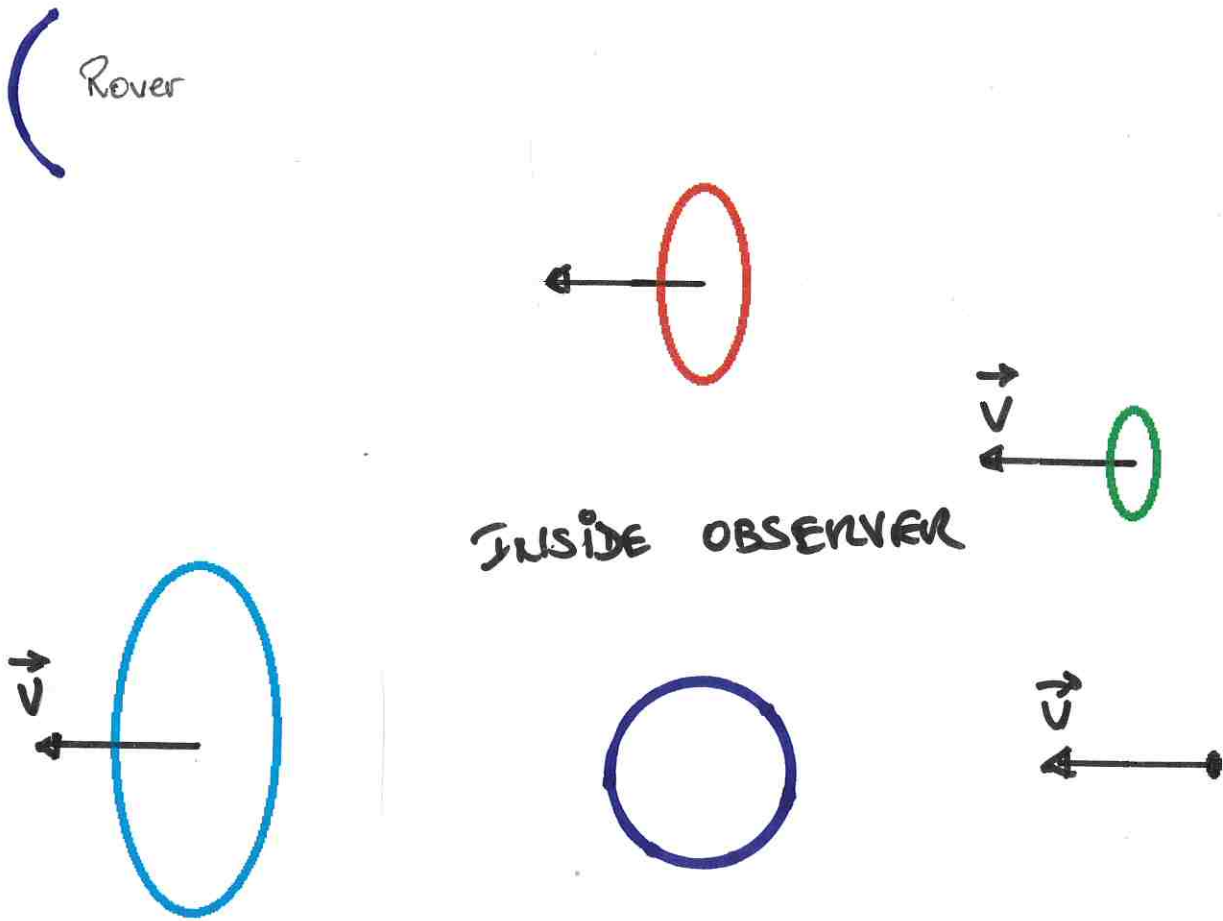 Rover
V
INSIDE OBSERVER
V
V